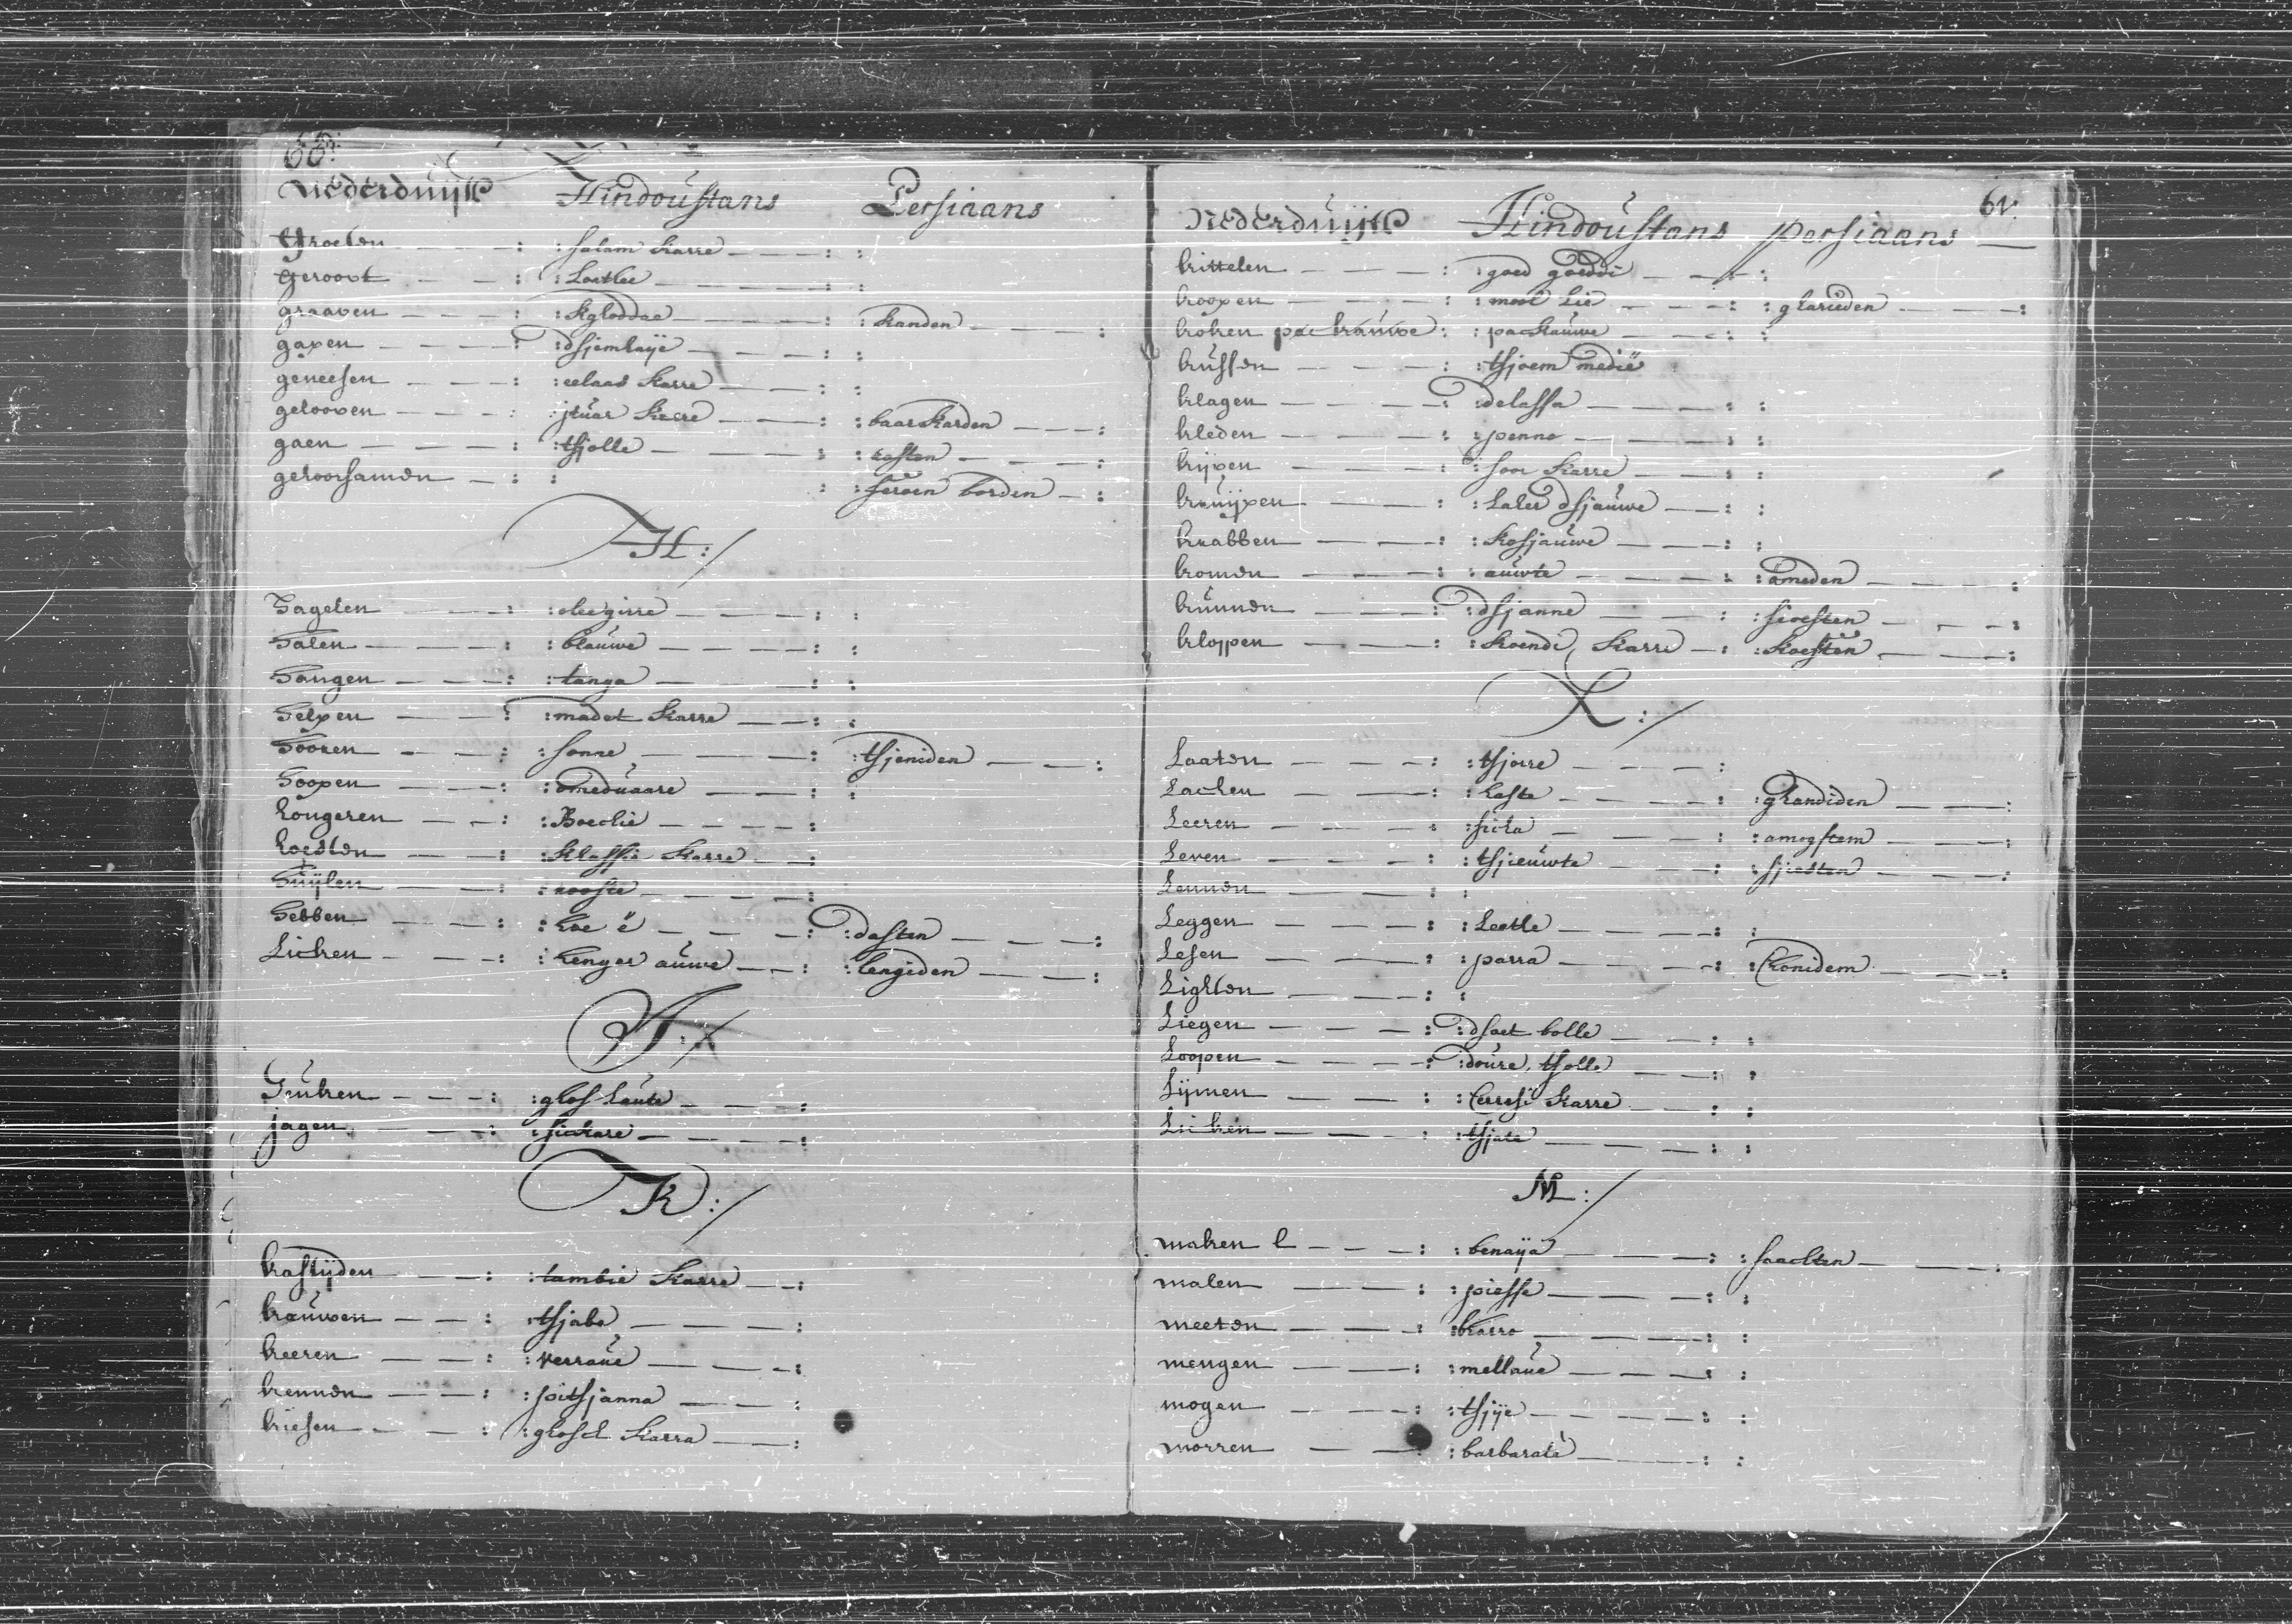 60:
Nederduijts Hindoustans Persiaans
Groeten — — — : : salam karre — — — : :
Geroovt — — — : : Loetlee — — — : :
graaven — — — : : kgloddae — — — : : kanden — — — :
gapen — — — : : dsjemhaije — — — : :
geneesen — — — : : eelaad karre — — — : :
gelooven — — — : : karre — — — : : baarkarden — — — :
gaen — — — : : tsjolle — — — : : raften — — — :
gehoorsamen — : : : : borden — :
H:/
Hagelen — — — : : oleegirre — — — : :
Halen — — — : : blauwe — — — : :
Hangen — — — : : tanga — — — : :
Helpen — — — : : madet karre — — : :
Hooren — — — : : sonne — — — : : tsjeniden — — :
Hoopen — — — : : omeduaare — — — : :
hongeren — — : : Boeckie — — — :
hoesten — — — : : klassie karre — — :
Huijlen — — — : : rooste — — — :
Hebben — — — : : hoe ë — — — : : dasten — — — :
Hicken — — — : : henger auwe — — : : hengiden — — :
J:/
Jeuken — — — : : glos laute — — — :
jagen — — — : : sickare — — — :
K:/
kastijden — — : : tambie karre — — :
kauwen — — — : : tsjabe — — — :
keeren — — — : : verraue — — — :
kennen — — — : : poitsjanna — — :
kiesen — — — : : glosch karra — — :
61:
Nederduijts Hindoustans persiaans —
kittelen — — — : : goed goeddi — — — : :
koopen — — — : : mool lie — — — : : gharieden — — — :
koken pa kauwe : : packauwe — — — : :
kussen — — — : : tsjoem medie
klagen — — — : : delassa — — — : :
kleden — — — : : penne — — — : :
kijven — — — : : soor karre — — — : :
kruijpen — — — : : Laler dsjauwe — — : :
krabben — — — : : kosjauwe — — — : :
komen — — — : : auwte — — — : : ameden — — — :
kunnen — — — : : dsjanne — — — : : sioesten — — — :
kloppen — — — : : koendi, karre — : : koesten — — — :
L:/
Laaten — — — : : tsjorre — — — :
Lachen — — — : : haste — — — : : ghandiden — — :
Leeren — — — : : sicka — — — : : amogstem — — — :
Leven — — — : : tsjieuwte — — — : : sjiesten — — — :
Lennen — — — : :
Leggen — — — : : Leetle — — — : :
Lesen — — — : : parra — — — : : konidem — — — :
Lighten — — — : :
Liegen — — — : : dsoet bolle — — — : :
Loopen — — — : : doure, tsolle — — — : :
Lijmen — — — : : karre — — : :
Licken — — — : : tsjate — — — : :
M:/
maken — — — : : benaija — — — : : saachten — — — :
malen — — — : : piesse — — — : :
meeten — — — : : bharro — — — : :
mengen — — — : : mellaue — — — : :
mogen — — — : : tsjije — — — : :
morren — — — : : barbarate — — — : :